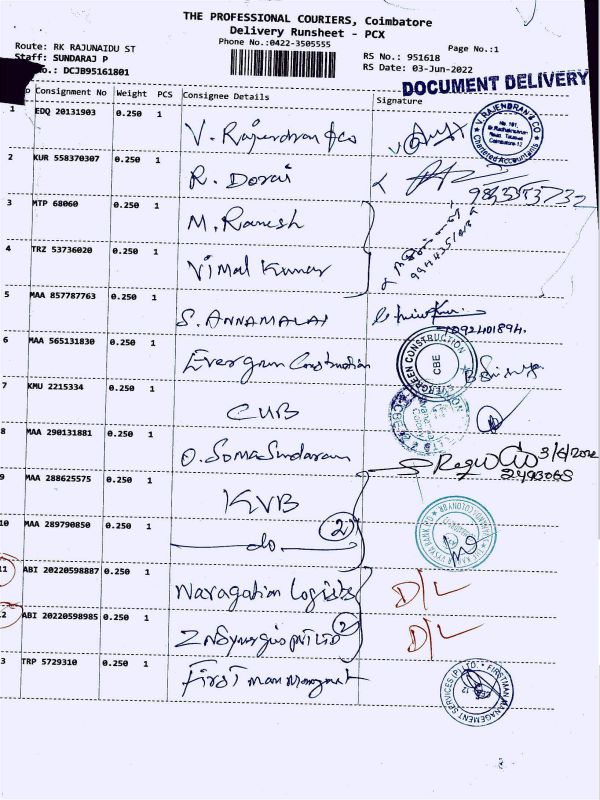 THE PROFESSIONAL COURIERS, Coimbatore
Delivery Runsheet - PCX
Phone No.:0422-3505555
Page No.:1
Route: RK RAJUNAIDU ST
Staff: SUNDARAJ P
No.: DCJB95161801
RS No.: 951618
RS Date: 03-Jun-2022
DOCUMENT DELIVERY
Consignment No Weight PCS Consignee Details Signature
1 EDQ 20131903 0.250 1 V. Rajendran & co
V. RAJENDRAN & CO
Chartered Accountants
2 KUR 558370307 0.250 1 R. Dorai
3 MTP 68060 0.250 1 M. Ramesh
4 TRZ 53736020 0.250 1 Vimal Kumar
5 MAA 857787763 0.250 1 S. ANNAMALAI
6 MAA 565131830 0.250 1 Evergreen Construction
EVERGREEN CONSTRUCTION
CBE
7 KMU 2215334 0.250 1 CUB
8 MAA 290131881 0.250 1 O. SomaSundaram
3/6/2022
9 MAA 288625575 0.250 1 KVB
10 MAA 289790850 0.250 1 do 2
11 ABI 20220598887 0.250 1 Navagation Logistics D/L
12 ABI 20220598985 0.250 1 ZNSynergies PVT LTD 2 D/L
3 TRP 5729310 0.250 1 First man Managment
FIRSTMAN MANAGEMENT SERVICES (P) LTD.